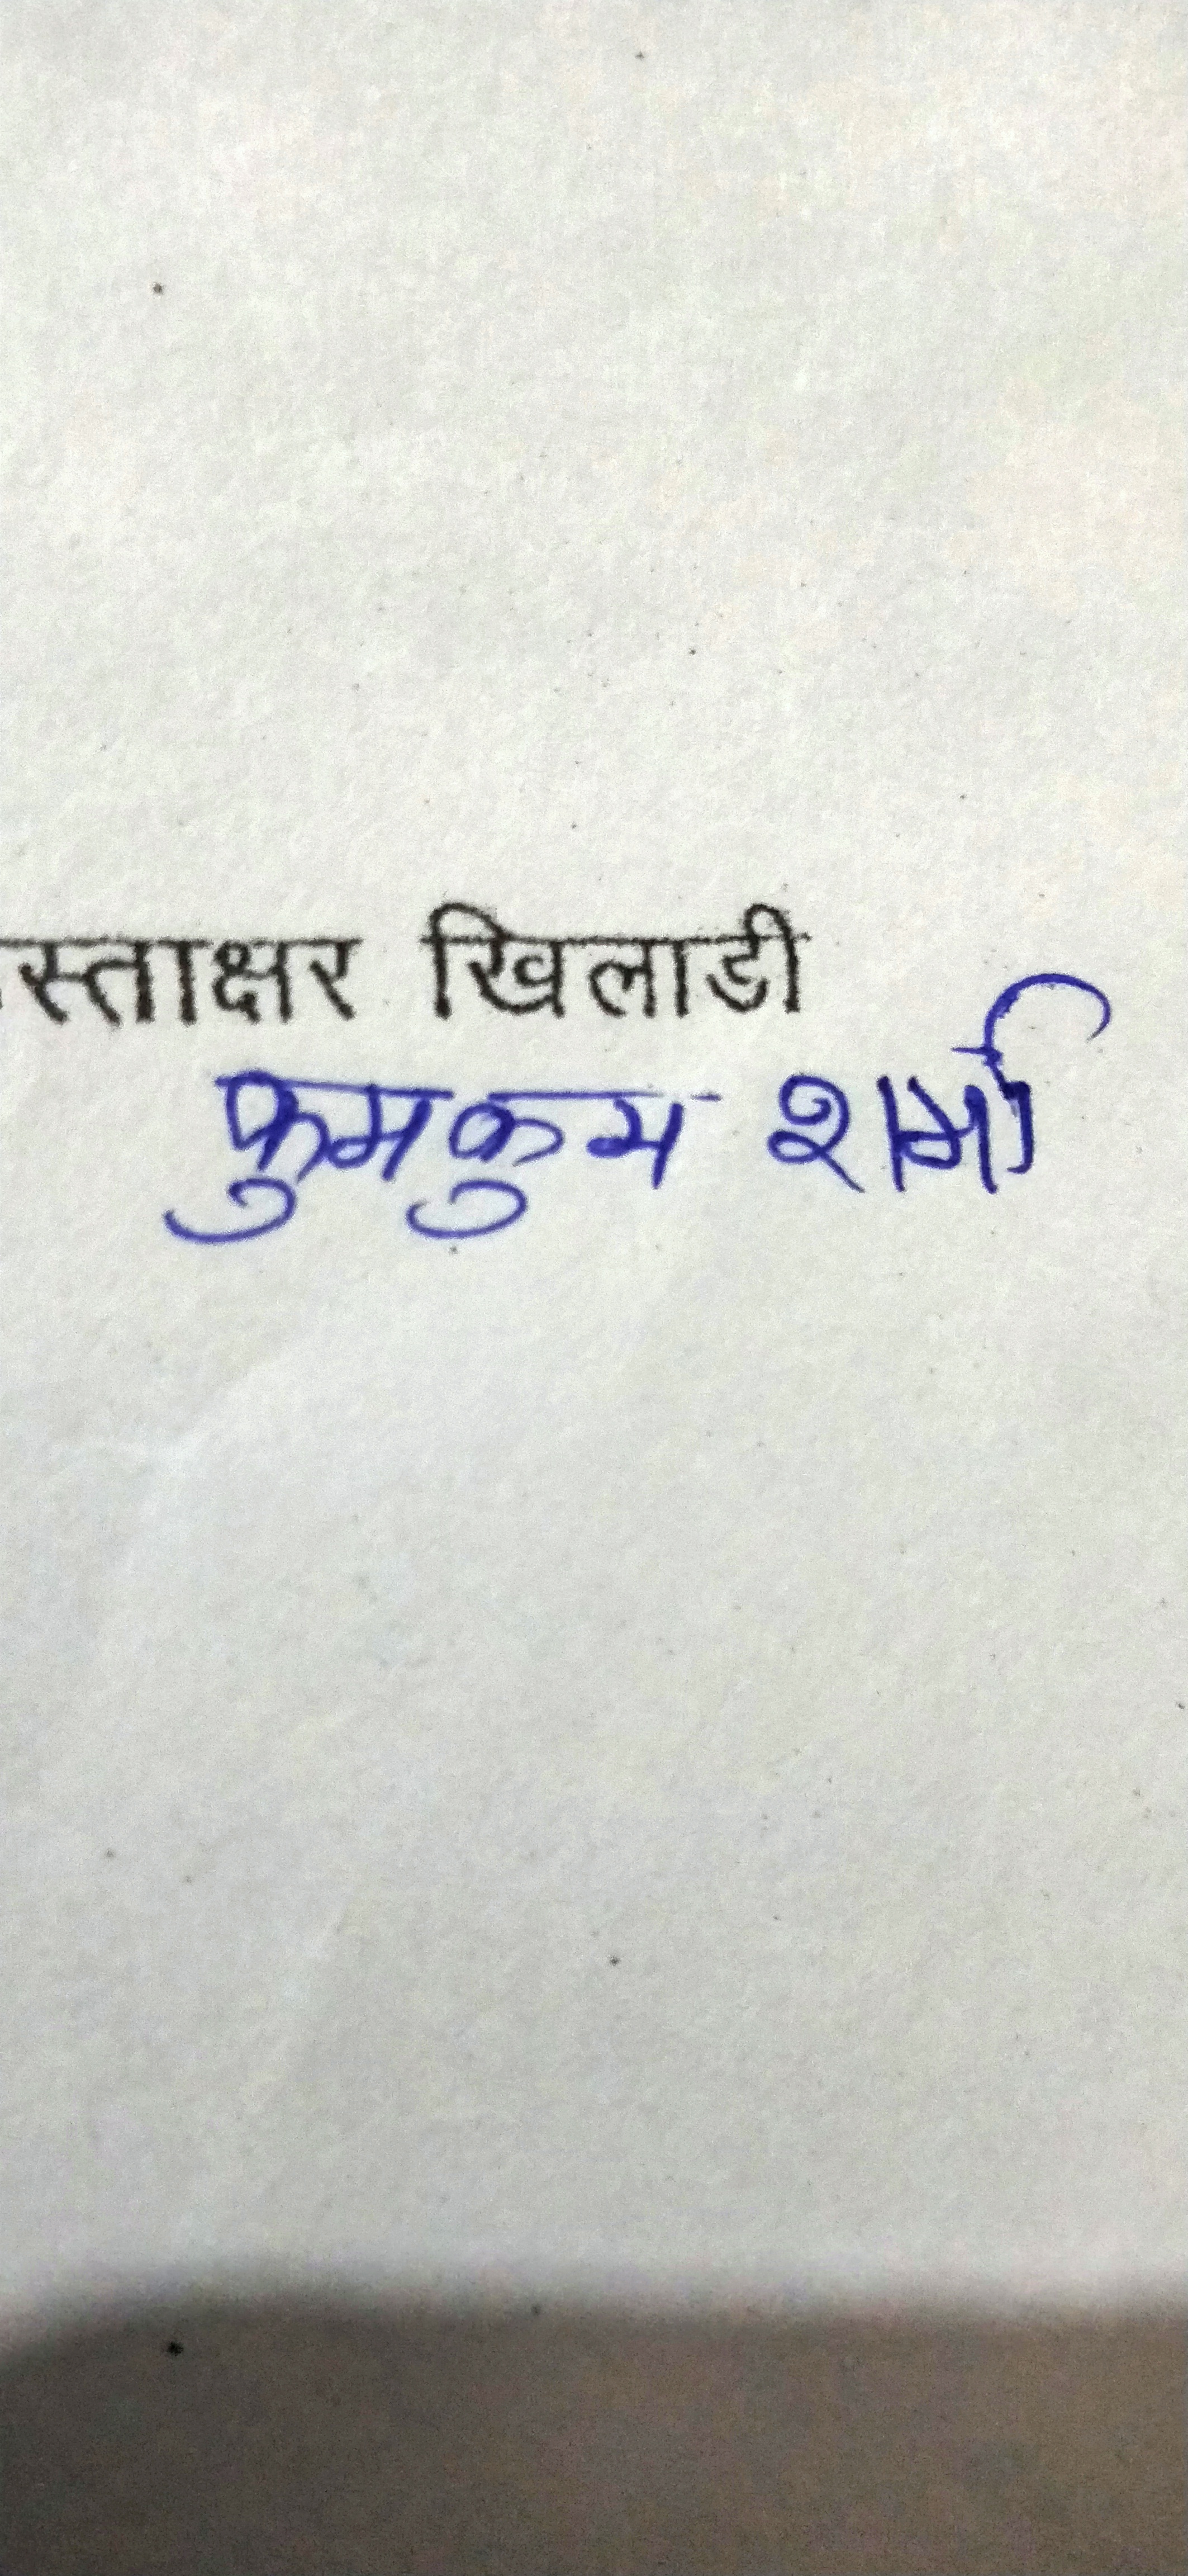 स्ताक्षर खिलाडी
कुमकुम शर्मा